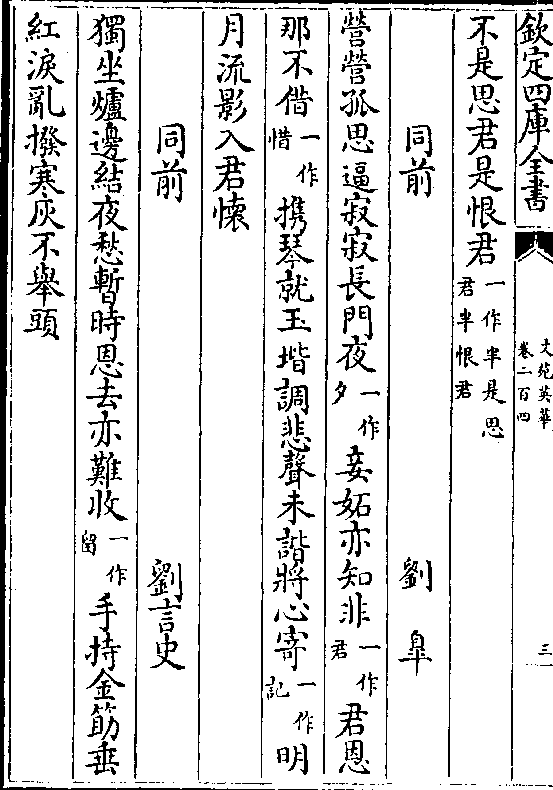 欽定四庫全書
文苑英華
卷二百四
三
不是思君是恨君一作半是思君半恨君
同前 劉皁
營營孤思逼寂寂長門夜一作夕妾妬亦知非一作君君恩
那不借一作惜携琴就玉堦調悲聲未諧將心寄一作記明
月流影入君懷
同前 劉言史
獨坐爐邊結夜愁暫時恩去亦難收一作留手持金筯垂
紅淚亂撥寒灰不舉頭